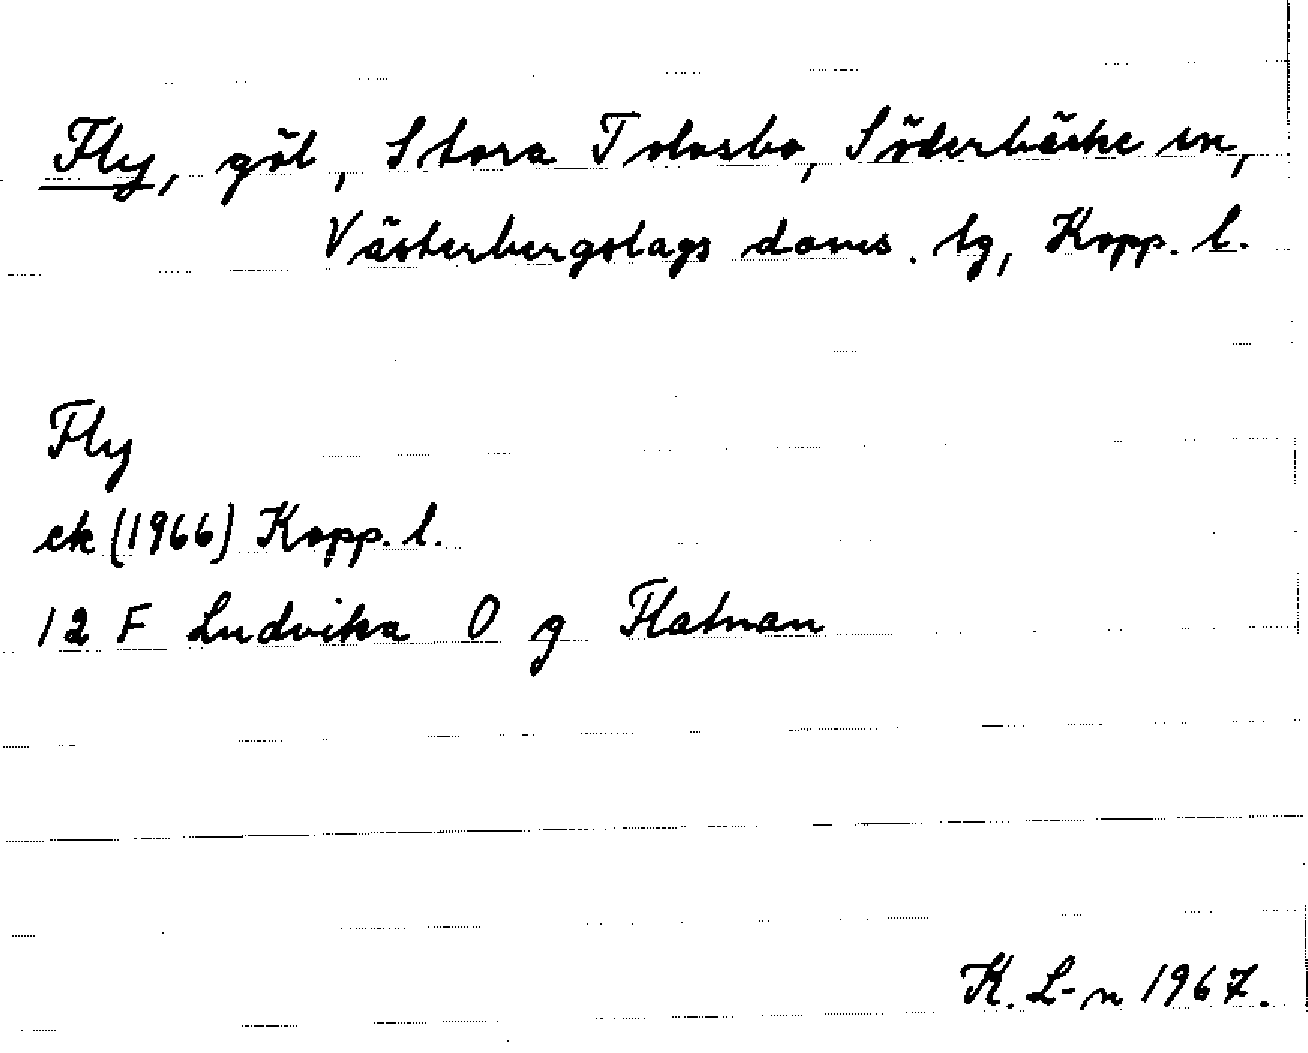 Fly, göl, Stora Tolvsbo, Söderbärke sn,
Västerbergslags doms. lg, Kopp. l.
Fly
ek (1966) Kopp. l.
12 F Ludvika O g Flatnan
K. L-n 1967.